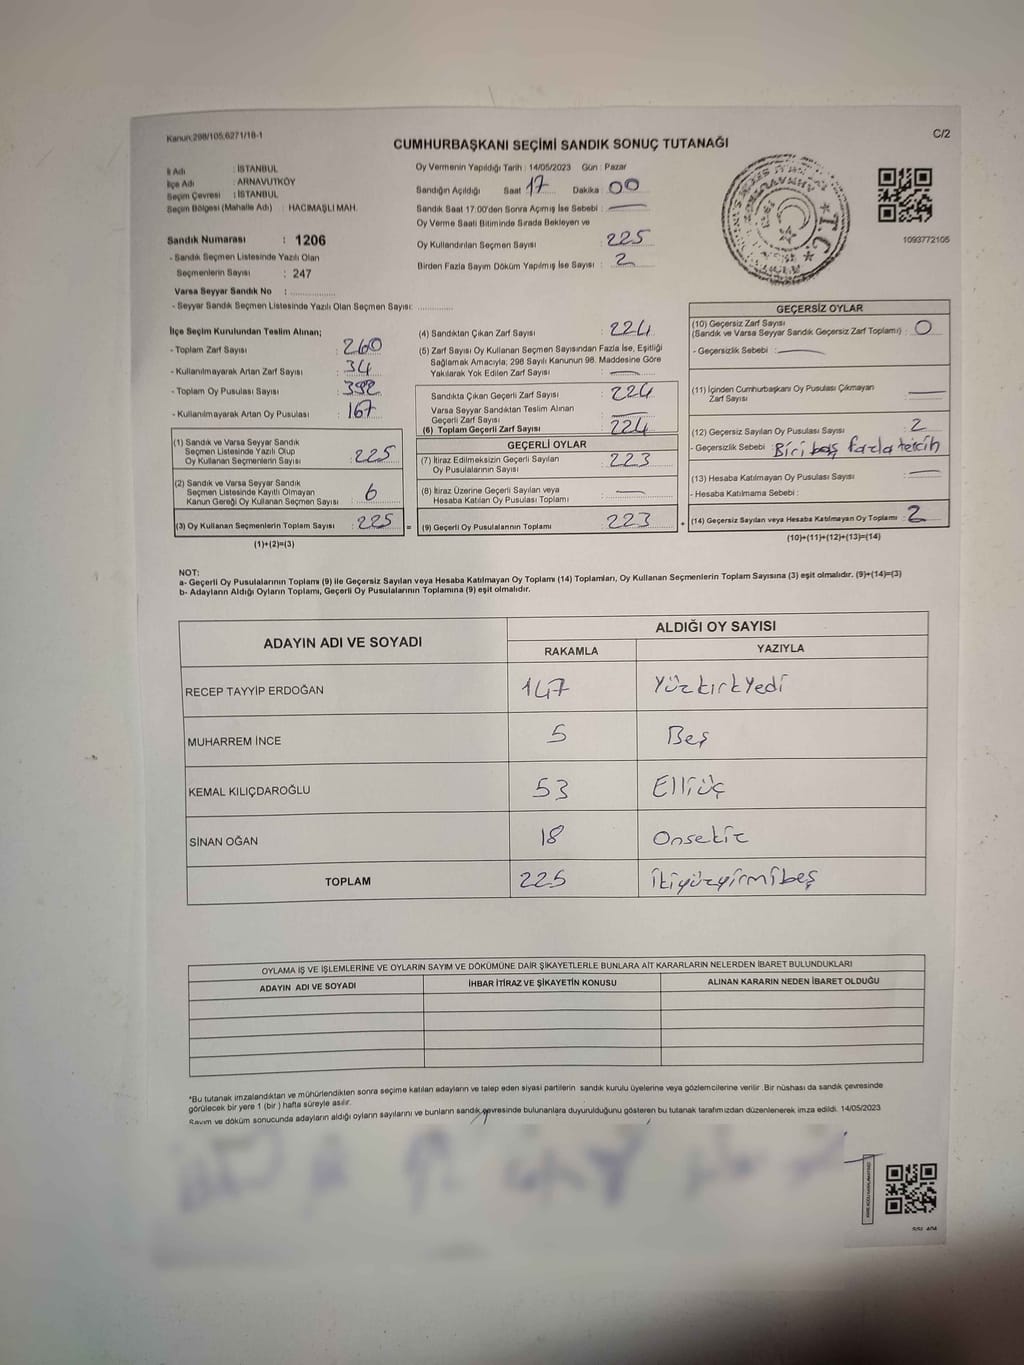 Kanun:298/105,6271/18-1
C/2
CUMHURBAŞKANI SEÇİMİ SANDIK SONUÇ TUTANAĞI
İl Adı : İSTANBUL
İlçe Adı : ARNAVUTKÖY
Seçim Çevresi : İSTANBUL
Seçim Bölgesi (Mahalle Adı) : HACIMAŞLI MAH.
Sandık Numarası : 1206
- Sandık Seçmen Listesinde Yazılı Olan
Seçmenlerin Sayısı : 247
Varsa Seyyar Sandık No : ..............
- Seyyar Sandık Seçmen Listesinde Yazılı Olan Seçmen Sayısı: ............
Oy Vermenin Yapıldığı Tarih : 14/05/2023 Gün : Pazar
Sandığın Açıldığı Saat 17 Dakika 00
Sandık Saat 17.00'den Sonra Açımış İse Sebebi :
Oy Verme Saati Bitiminde Sırada Bekleyen ve
Oy Kullandırılan Seçmen Sayısı : 225
Birden Fazla Sayım Döküm Yapılmış İse Sayısı : 2
T.C.
1093772105
İlçe Seçim Kurulundan Teslim Alınan;
- Toplam Zarf Sayısı : 260
- Kullanılmayarak Artan Zarf Sayısı : 34
- Toplam Oy Pusulası Sayısı : 392
- Kullanılmayarak Artan Oy Pusulası : 167
(1) Sandık ve Varsa Seyyar Sandık
Seçmen Listesinde Yazılı Olup
Oy Kullanan Seçmenlerin Sayısı : 225
(2) Sandık ve Varsa Seyyar Sandık
Seçmen Listesinde Kayıtlı Olmayan
Kanun Gereği Oy Kullanan Seçmen Sayısı : 6
(3) Oy Kullanan Seçmenlerin Toplam Sayısı : 225 =
(1)+(2)=(3)
(4) Sandıktan Çıkan Zarf Sayısı : 224
(5) Zarf Sayısı Oy Kullanan Seçmen Sayısından Fazla İse, Eşitliği
Sağlamak Amacıyla; 298 Sayılı Kanunun 98. Maddesine Göre
Yakılarak Yok Edilen Zarf Sayısı :
Sandıkta Çıkan Geçerli Zarf Sayısı : 224
Varsa Seyyar Sandıktan Teslim Alınan
Geçerli Zarf Sayısı :
(6) Toplam Geçerli Zarf Sayısı : 224
GEÇERLİ OYLAR
(7) İtiraz Edilmeksizin Geçerli Sayılan
Oy Pusulalarının Sayısı : 223
(8) İtiraz Üzerine Geçerli Sayılan veya
Hesaba Katılan Oy Pusulası Toplamı :
(9) Geçerli Oy Pusulalarının Toplamı : 223 +
GEÇERSİZ OYLAR
(10) Geçersiz Zarf Sayısı
(Sandık ve Varsa Seyyar Sandık Geçersiz Zarf Toplamı) : 0
- Geçersizlik Sebebi :
(11) İçinden Cumhurbaşkanı Oy Pusulası Çıkmayan
Zarf Sayısı :
(12) Geçersiz Sayılan Oy Pusulası Sayısı : 2
- Geçersizlik Sebebi : Biri boş fazla tercih
(13) Hesaba Katılmayan Oy Pusulası Sayısı :
- Hesaba Katılmama Sebebi :
(14) Geçersiz Sayılan veya Hesaba Katılmayan Oy Toplamı : 2
(10)+(11)+(12)+(13)=(14)
NOT:
a- Geçerli Oy Pusulalarının Toplamı (9) ile Geçersiz Sayılan veya Hesaba Katılmayan Oy Toplamı (14) Toplamları, Oy Kullanan Seçmenlerin Toplam Sayısına (3) eşit olmalıdır. (9)+(14)=(3)
b- Adayların Aldığı Oyların Toplamı, Geçerli Oy Pusulalarının Toplamına (9) eşit olmalıdır.
ADAYIN ADI VE SOYADI
ALDIĞI OY SAYISI
RAKAMLA YAZIYLA
RECEP TAYYİP ERDOĞAN 147 Yüzkırkyedi
MUHARREM İNCE 5 Beş
KEMAL KILIÇDAROĞLU 53 Elliüç
SİNAN OĞAN 18 Onsekiz
TOPLAM 225 ikiyüzyirmibeş
OYLAMA İŞ VE İŞLEMLERİNE VE OYLARIN SAYIM VE DÖKÜMÜNE DAİR ŞİKAYETLERLE BUNLARA AİT KARARLARIN NELERDEN İBARET BULUNDUKLARI
ADAYIN ADI VE SOYADI İHBAR İTİRAZ VE ŞİKAYETİN KONUSU ALINAN KARARIN NEDEN İBARET OLDUĞU
*Bu tutanak imzalandıktan ve mühürlendikten sonra seçime katılan adayların ve talep eden siyasi partilerin sandık kurulu üyelerine veya gözlemcilerine verilir .Bir nüshası da sandık çevresinde
görülecek bir yere 1 (bir ) hafta süreyle asılır.
Sayım ve döküm sonucunda adayların aldığı oyların sayılarını ve bunların sandık çevresinde bulunanlara duyurulduğunu gösteren bu tutanak tarafımızdan düzenlenerek imza edildi. 14/05/2023